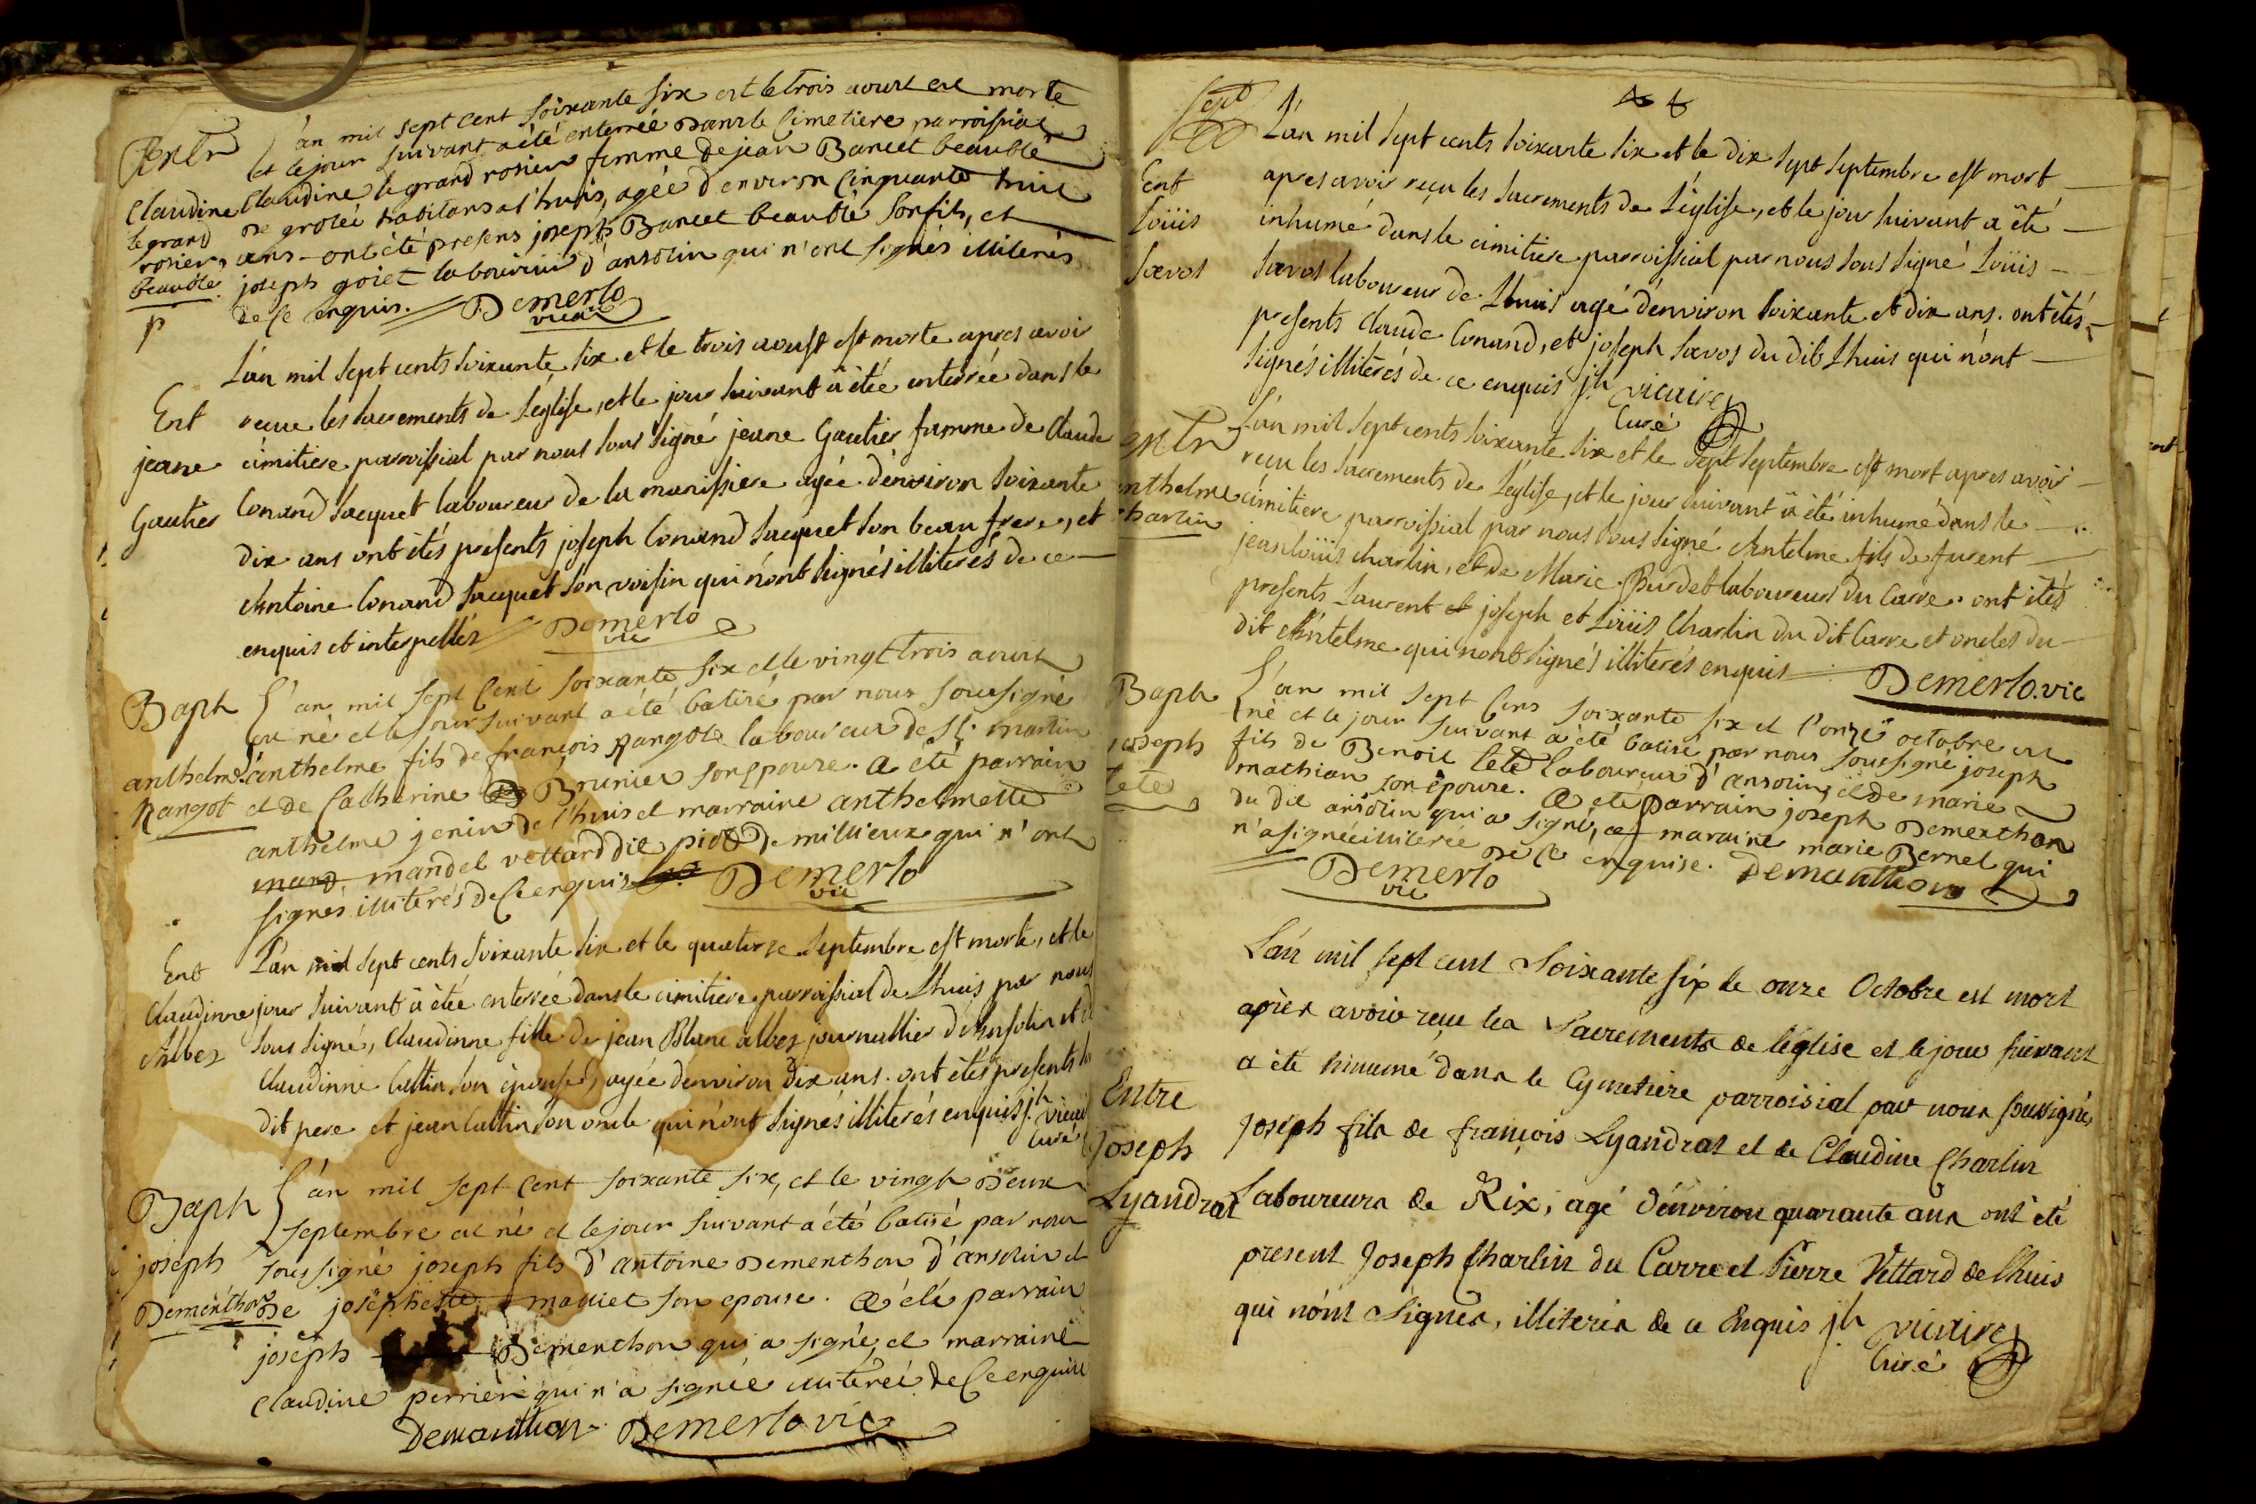 Entr
Claudine
le grand
rosier
beauble
p
L'an mil sept cent soixante six et le trois aoust est morte
et le jour suivant a été enterrée dans le cimetiere parroissial
Claudine le grand rosier femme de jean Bancet beauble
de grolée habitans a l'huis, agée d'environ cinquante huit
ans - ont été presens joseph Bancet beauble son fils, et
joseph goiet laboureur d'ansolin qui n'ont signés illiterés
de ce enquis. Demerlo
vicaire
Ent
jeane
Gautier
L'an mil sept cents soixante six et le trois aoust est morte apres avoir
reçue les sacrements de l'église, et le jour suivant à étée enterrée dans le
cimitiere parroissial par nous sous signé jeane Gautier famme de Claude
Conand Jacquet laboureur de la manissiere agée d'environ soixante
dix ans ont étés presents joseph Conand Jacquet son beau frere, et
Antoine Conand Jacquet son voisin qui n'ont signés illiterés de ce
enquis et interpellés Demerlo
vic
Bapt
anthelme
Rangot
L'an mil sept cent soixante six et le vingt trois aoust
est né et le jour suivant a été batisé par nous soussigné
anthelme fils de françois Rangot laboureur de st. martin
et de Catherine Brunier son epouse. a été parrain
anthelme jenin de l'huis et marraine anthelmette
mand mandel vettard dit piot de millieux qui n'ont
signés illiterés de ce enquis Demerlo
vic
Ent
Claudinne
Alber
L'an mil sept cents soixante six et le quatorze septembre est morte, et le
jour suivant à étée enterrée dans le cimitiere parroissial de Lhuis par nous
sous signé, Claudinne fille de jean Blanc alber journallier d'Ansolin et de
Claudinne Cullin son épouse, agée d'environ dix ans. ont étés presents le
dit pere et jean Cullin son oncle qui n'ont signés illiterés enquis jh vicaire
Curé
Bapt
joseph
Dementhon
L'an mil sept cent soixante six, et le vingt deux
septembre est né et le jour suivant a été batisé par nous
soussigné joseph fils d'antoine Dementhon d'ansolin et
de josephette maniet son epouse. a été parrain
joseph Dementhon qui a signé, et marraine
Claudine perrier qui n'a signée illiterée de ce enquise
Demanthon Demerlo vic
Sept
Ent
Loüis
Sævos
L'an mil sept cents soixante six et le dix sept septembre est mort
apres avoir reçu les sacrements de l'église, et le jour suivant à été
inhumé dans le cimitiere parroissial par nous sous signé Loüis
Sævos laboureur de Lhuis agé d'environ soixante et dix ans. ont étés
presents Claude Conand, et joseph Sævos du dit Lhuis qui n'ont
signés illiterés de ce enquis jh vicaire
Curé
Entr
anthelme
Charlin
L'an mil sept cents soixante six et le sept septembre est mort apres avoir
reçu les sacrements de l'église, et le jour suivant à été inhumé dans le
cimitiere parroissial par nous sous signé Antelme fils de furent
jean loüis charlin, et de Marie Burdet laboureurs du Carre. ont étés
presents Laurent et joseph et Loüis Charlin du dit Carre et oncles du
dit Antelme qui n'ont signés illiterés enquis Demerlo. vic
Bapt
joseph
tete
L'an mil sept cens soixante six et l'onze octobre est
né et le jour suivant a été batisé par nous soussigné joseph
fils de Benoit tete laboureur d'ansolin, et de marie
mathian son épouse. a été parrain joseph Dementhon
du dit ansolin qui a signé, et maraine marie Bernet qui
n'a signée illiterée de ce enquise. Demanthon
Demerlo
vic
Entre
Joseph
Lyandrat
L'an mil sept cent Soixante six le onze Octobre est mort
après avoir reçu les Sacrements de l'église et le jour suivant
a été hinumé dans le Cymetiere parroisial par nous soussigné
Joseph fils de françois Lyandrat et de Claudine Charlin
Laboureurs de Rix, agé d'environ quarante ans ont été
present Joseph Charlin du Carre et Pierre Vettard de lhuis
qui n'ont Signés, illiterés de ce Enquis jh vicaire
Curé